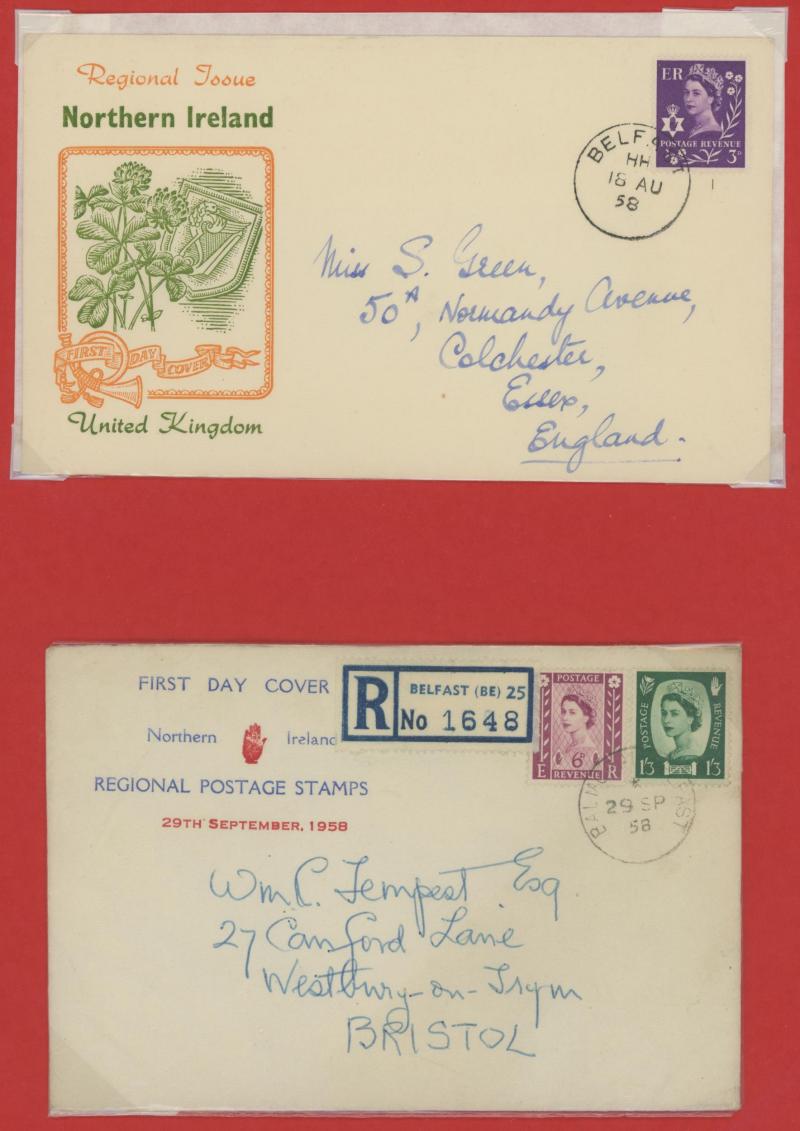 Regional Issue
Northern Ireland
FIRST DAY COVER
United Kingdom
ER
POSTAGE REVENUE 3D
BELFAST
HH
18 AU
58
Miss S. Green,
50A, Normandy Avenue,
Colchester,
Essex,
England.
FIRST DAY COVER
Northern Ireland
REGIONAL POSTAGE STAMPS
29TH SEPTEMBER, 1958
R BELFAST (BE) 25
No 1648
POSTAGE
6D
E REVENUE R
POSTAGE REVENUE
1'3 1'3
29 SP
58
Wm C. Tempest Esq
27 Canford Lane
Westbury-on-Trym
BRISTOL